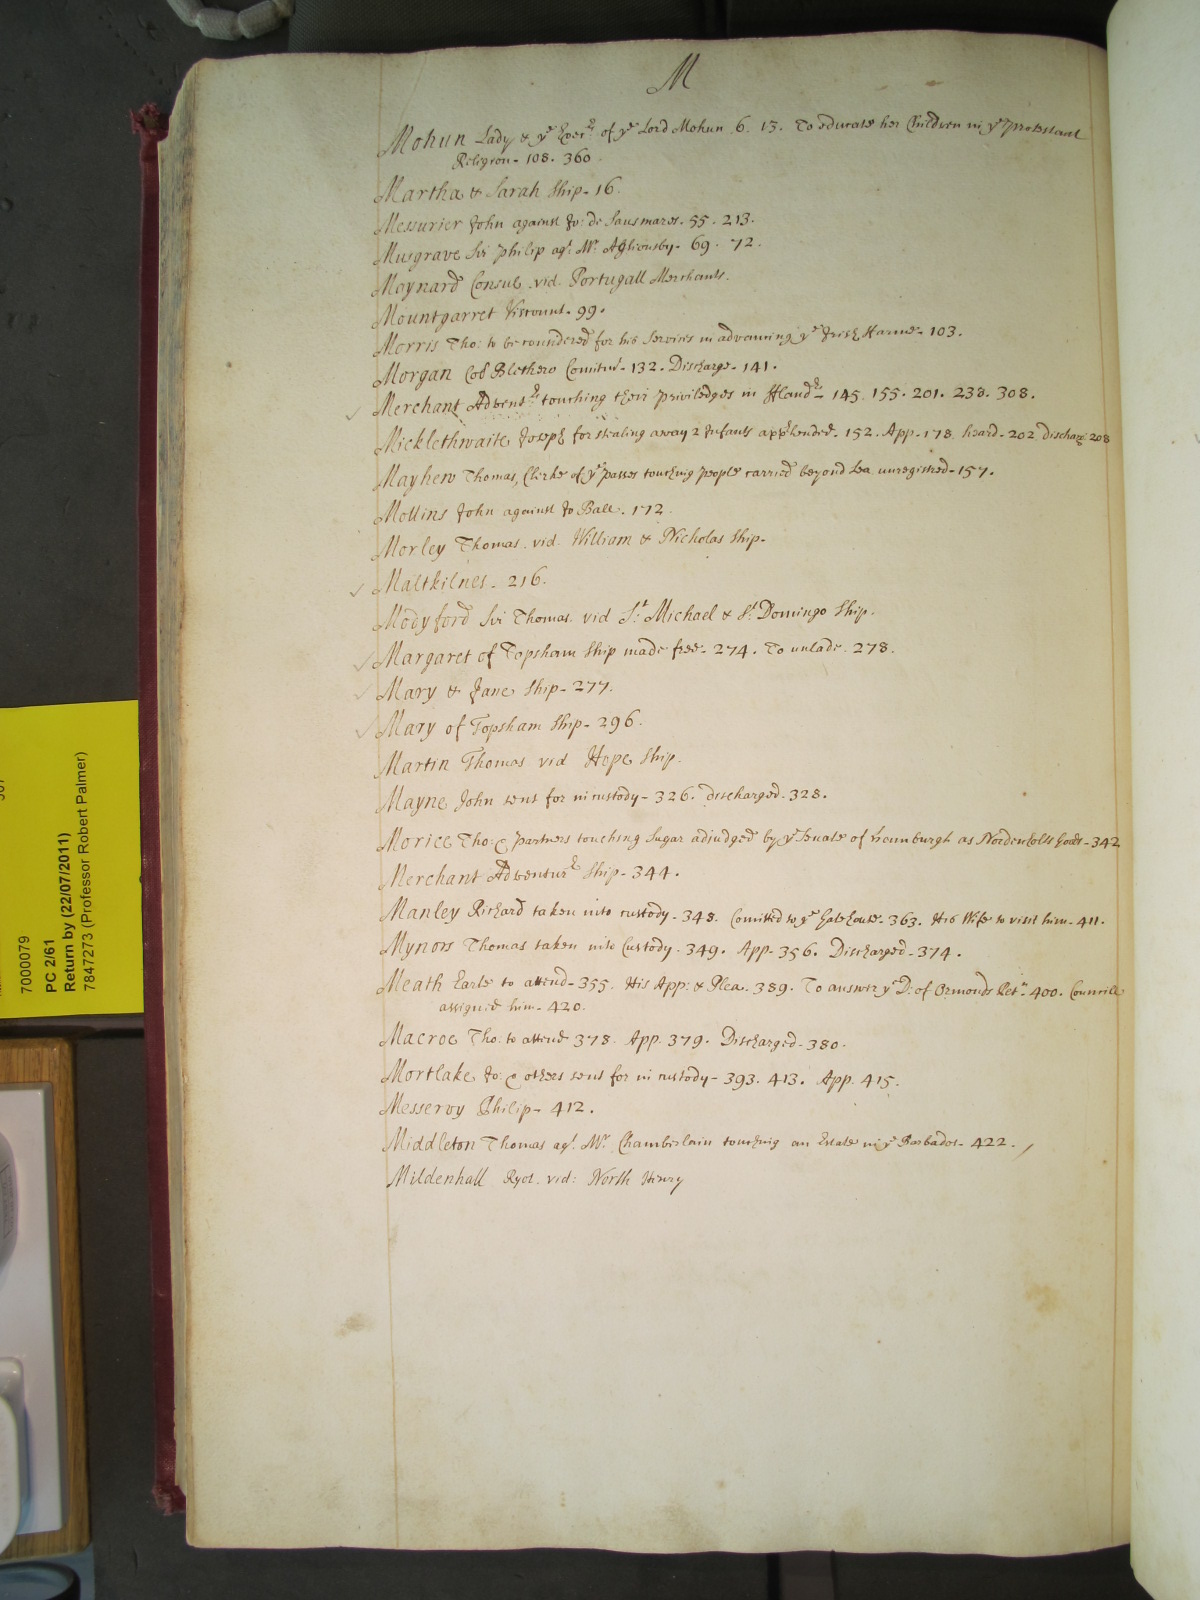 M
Mohun Lady & ye Execrs. of ye Lord Mohun. 6. 13. To educate her Children in ye Protestant
Religion - 108. 360.
Martha & Sarah Ship - 16.
Messurier John against Jo: de Sausmares - 55. 213.
Musgrave Sir Philip agt. Mr. Aglionby - 69. 72.
Moynard Consul. vid. Portugall Merchants.
Mountgarret Viscount - 99.
Morris Tho: to be considered for his Services in advancing ye Irish Harme - 103.
Morgan Coll Blethero Comitted - 132. Discharge - 141.
Merchant Adventrs. touching their priviledges in Holland - 145. 155. 201. 238. 308.
Micklethwaite Joseph for stealing away 2 Infants apphended - 152. App - 178. heard - 202. discharg 208
Mayhew Thomas, Clerke of ye Passes touching people carried beyond Sea unregistred - 157.
Mollins John against Jo Ball. 172.
Morley Thomas. vid. William & Nicholas Ship -
Maltkilnes - 216.
Modyford Sir Thomas. vid St. Michael & St. Domingo Ship.
Margaret of Topsham Ship made free - 274. To unlade - 278.
Mary & Jane Ship - 277.
Mary of Topsham Ship - 296.
Martin Thomas vid Hope Ship.
Mayne John sent for in custody - 326. discharged - 328.
Morice Tho: & partners touching Sugar adjudged by ye Senate of Hamburgh as Goods - 342
Merchant Adventurs. Ship - 344.
Manley Richard taken into custody - 348. Comitted to ye Gatehouse - 363. His Wife to visit him - 411.
Mynors Thomas taken into Custody - 349. App - 356. Discharged - 374.
Meath Earle to attend - 355. His App: & Plea. 389. To answer ye D: of Ormonds Petn. 400. Councill
assigned him - 420.
Macroe Tho: to attend 378. App. 379. Discharged - 380.
Mortlake Jo: & others sent for in custody - 393. 413. App. 415.
Messervy Philip - 412.
Middleton Thomas agt. Mr. Chamberlain touching an Estate in ye Barbados - 422.
Mildenhall Ryot. vid: North Henry
7000079
PC 2/61
Return by (22/07/2011)
7847273 (Professor Robert Palmer)